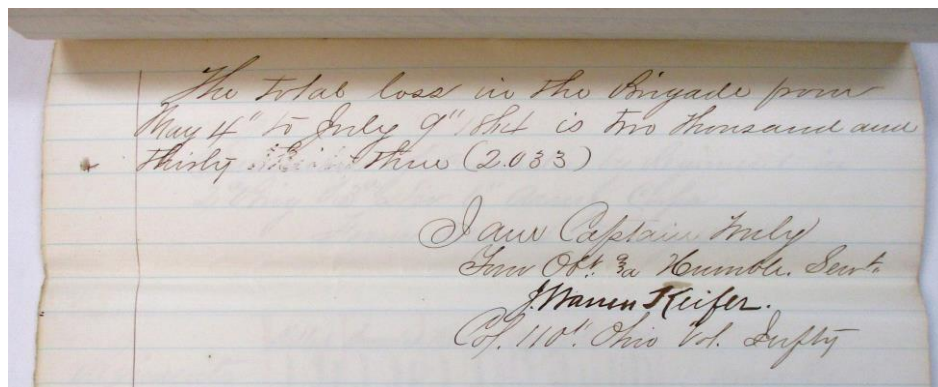 The total loss in the Brigade from
May 4" to July 9" 1864 is two thousand and
thirty three (2.033)
I am Captain truly
Your Obt. & Humble. Servt.
J. Warren Keifer.
Col. 110" Ohio Vol. Infty